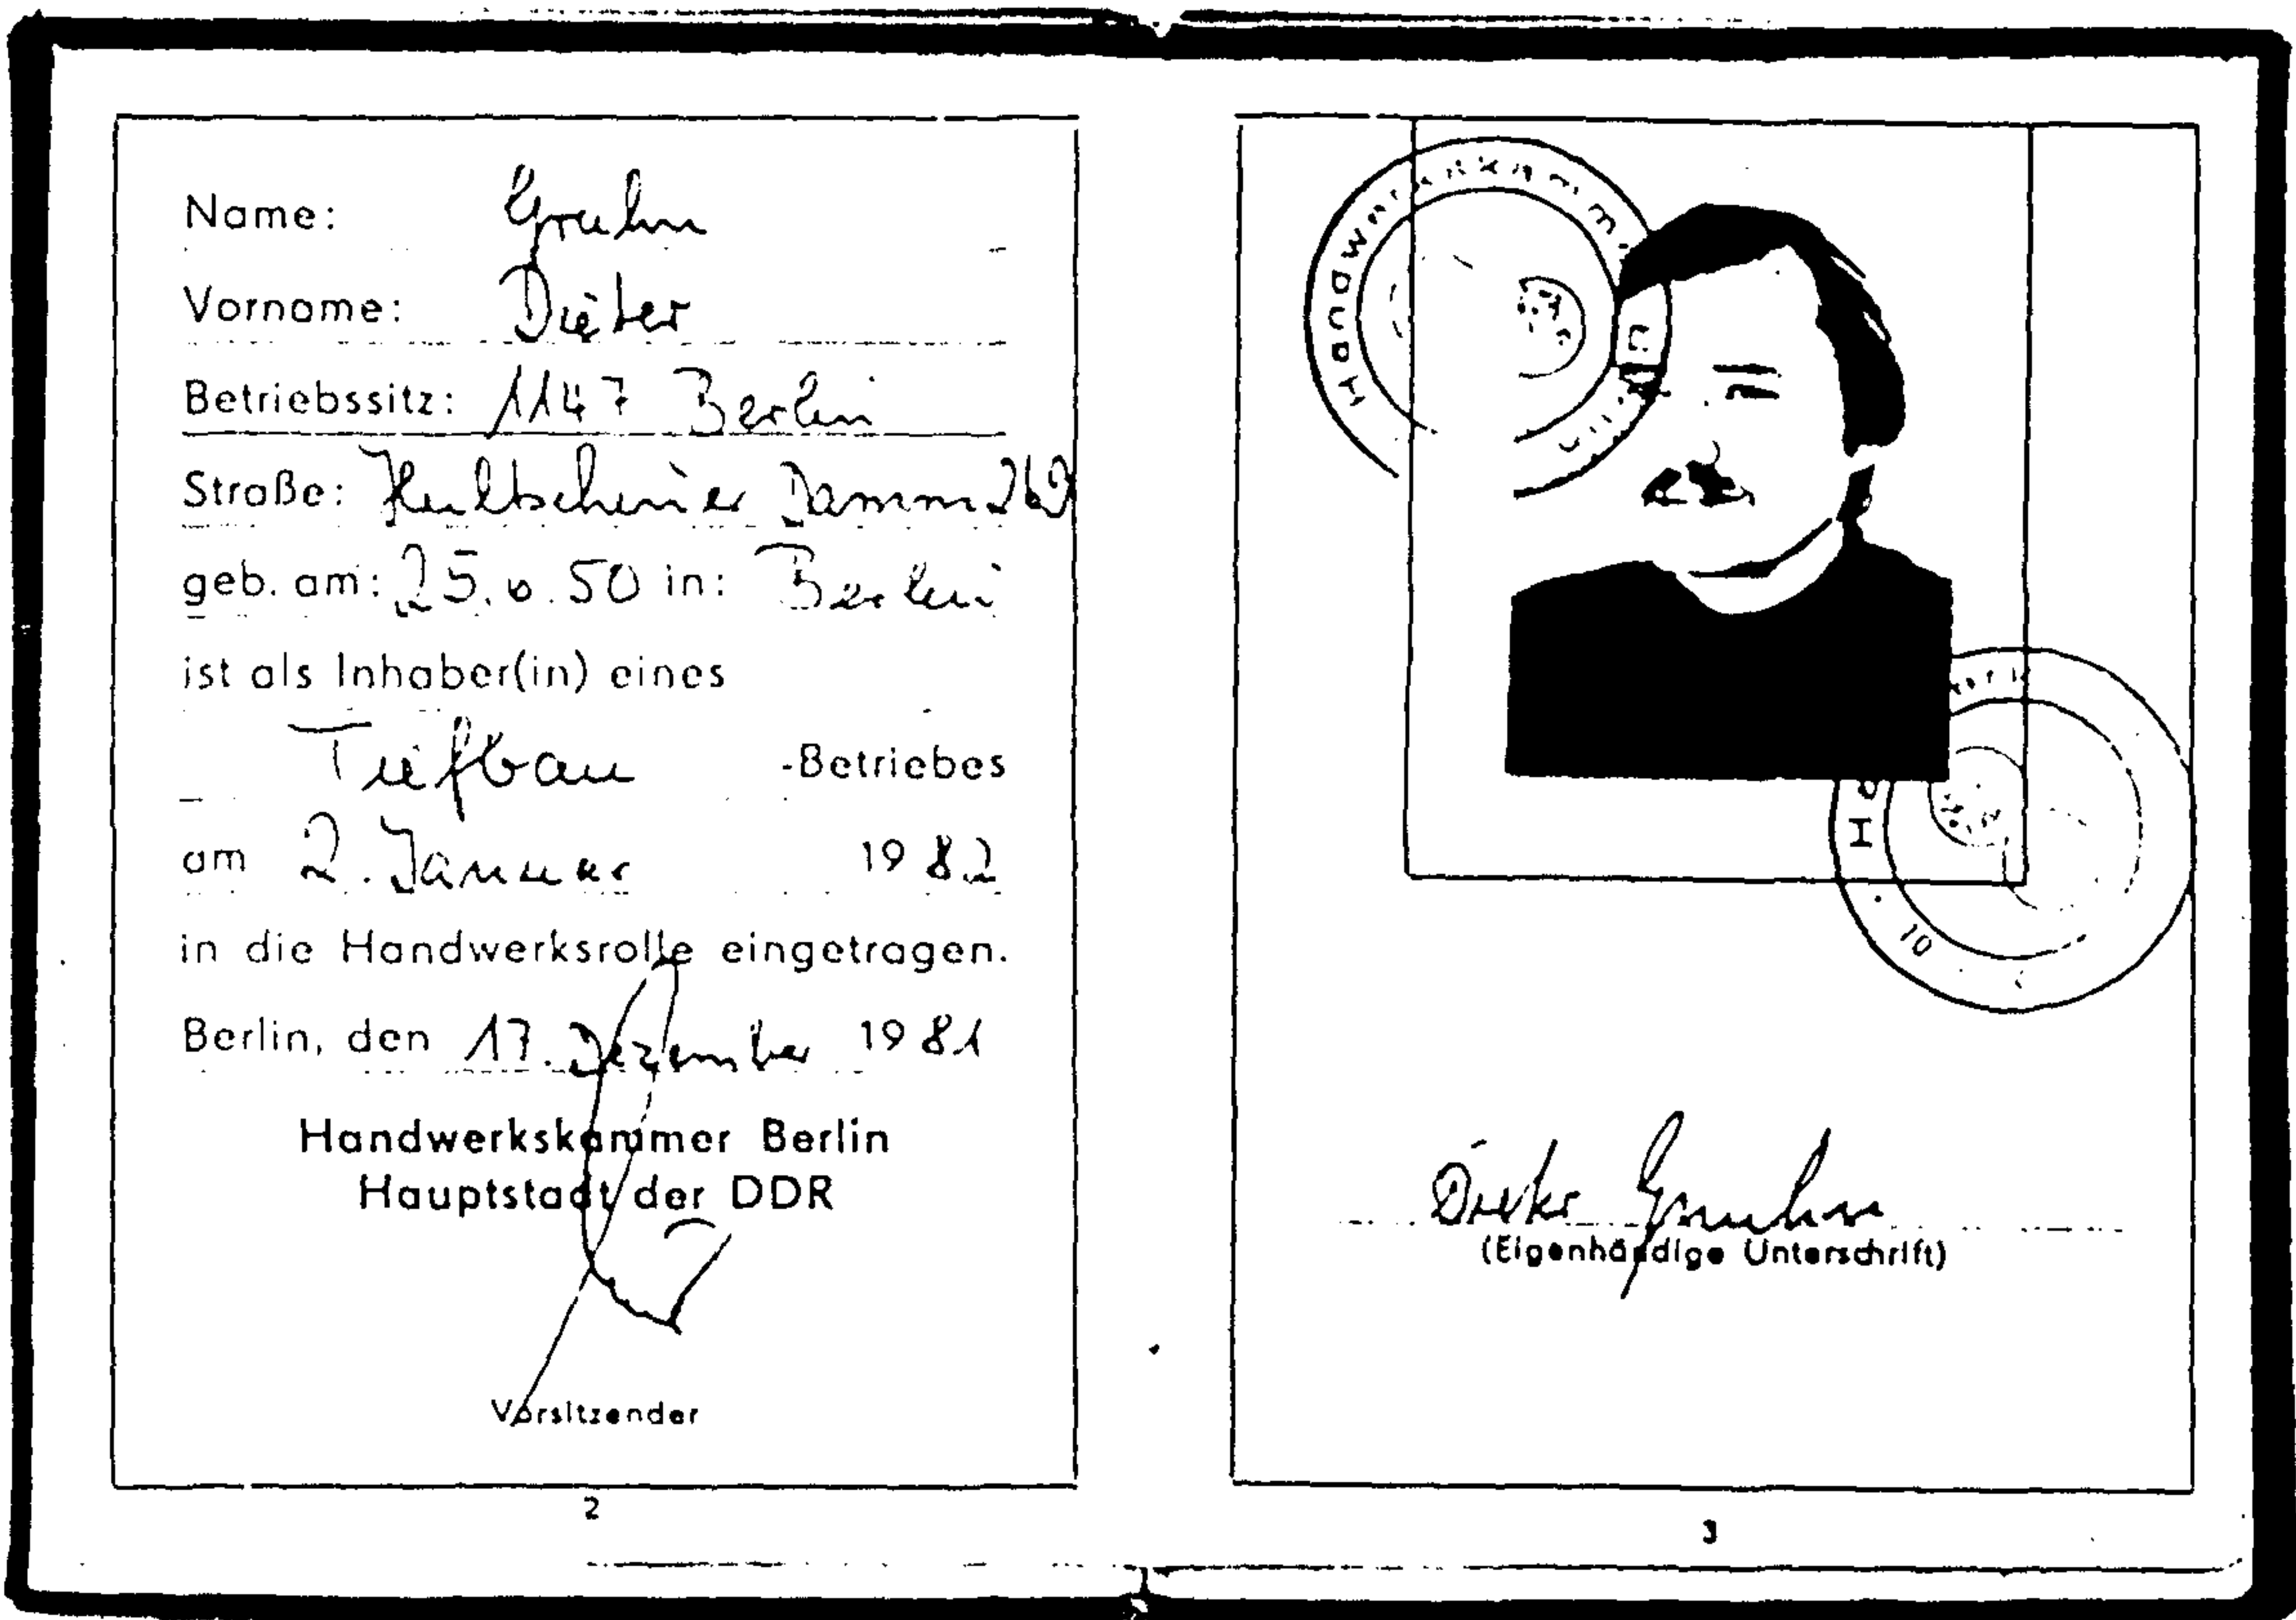 Name: Gruhn
Vorname: Dieter
Betriebssitz: 1147 Berlin
Straße: Hultschiner Damm
geb. am: 25. 6. 50 in: Berlin
ist als Inhaber(in) eines
Tiefbau -Betriebes
am 2. Januar 1982
in die Handwerksrolle eingetragen.
Berlin, den 17. Dezember 1981
Handwerkskammer Berlin
Hauptstadt der DDR
Vorsitzender
2
Handwerkskammer
10
Dieter Gruhn
(Eigenhändige Unterschrift)
3